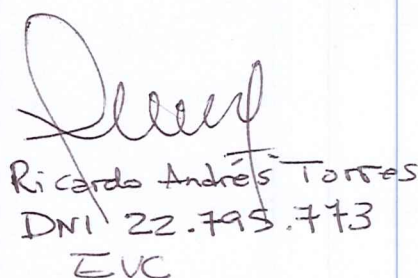 Ricardo Andrés Torres
DNI 22.795.773
EVC